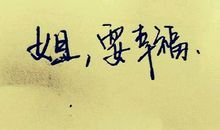 姐,要幸福.